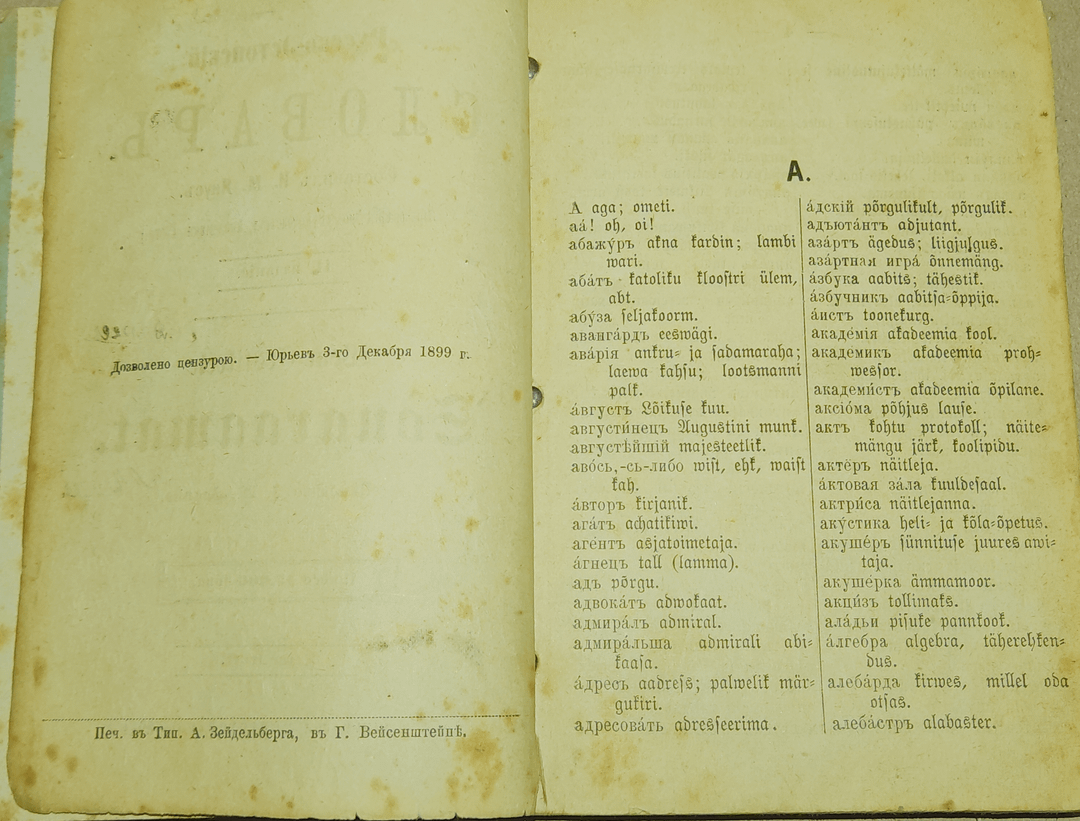 Дозволено цензурою. — Юрьевъ 3-го Декабря 1899 г.
Печ. въ Тип. А. Зейдельберга, въ Г. Вейсенштейнѣ,
А.
А aga; ometi.
аа́! oh, oi!
абажу́ръ akna kardin; lambi
wari.
аба́тъ katoliku kloostri ülem,
abt.
абу́за seljakoorm.
аванга́рдъ eeswägi.
ава́рія ankru- ja sadamaraha;
laewa kahju; lootsmanni
palk.
а́вгустъ Lõikuse kuu.
августи́нецъ Augustini munk.
августѣ́йшій majesteetlik.
аво́сь,-сь-либо wist, ehk, waist
kah.
а́вторъ kirjanik.
ага́тъ achatikiwi.
аге́нтъ asjatoimetaja.
а́гнецъ tall (lamma).
адъ põrgu.
адвока́тъ adwokaat.
адмира́лъ admiral.
адмира́льша admirali abi-
kaasa.
а́дресъ aadress; palwelik mär-
gukiri.
адресова́ть adresseerima.
а́дскій põrgulikult, põrgulik.
адъюта́нтъ adjutant.
аза́ртъ ägedus; liigjulgus.
аза́ртная игра́ õnnemäng.
а́збука aabits; tähestik.
а́збучникъ aabitsa-õppija.
а́истъ toonekurg.
акаде́мія akadeemia kool.
академикъ akadeemia proh-
wessor.
академи́стъ akadeemia õpilane.
аксіо́ма põhjus lause.
актъ kohtu protokoll; näite-
mängu järk, koolipidu.
актёръ näitleja.
а́ктовая за́ла kuuldesaal.
актри́са näitlejanna.
аку́стика heli- ja kõla-õpetus.
акушёръ sünnituse juures awi-
taja.
акуше́рка ämmamoor.
акци́зъ tollimaks.
ала́дьи pisuke pannkook.
а́лгебра algebra, täherehken-
dus.
алеба́рда kirwes, millel oda
otsas.
алеба́стръ alabaster.